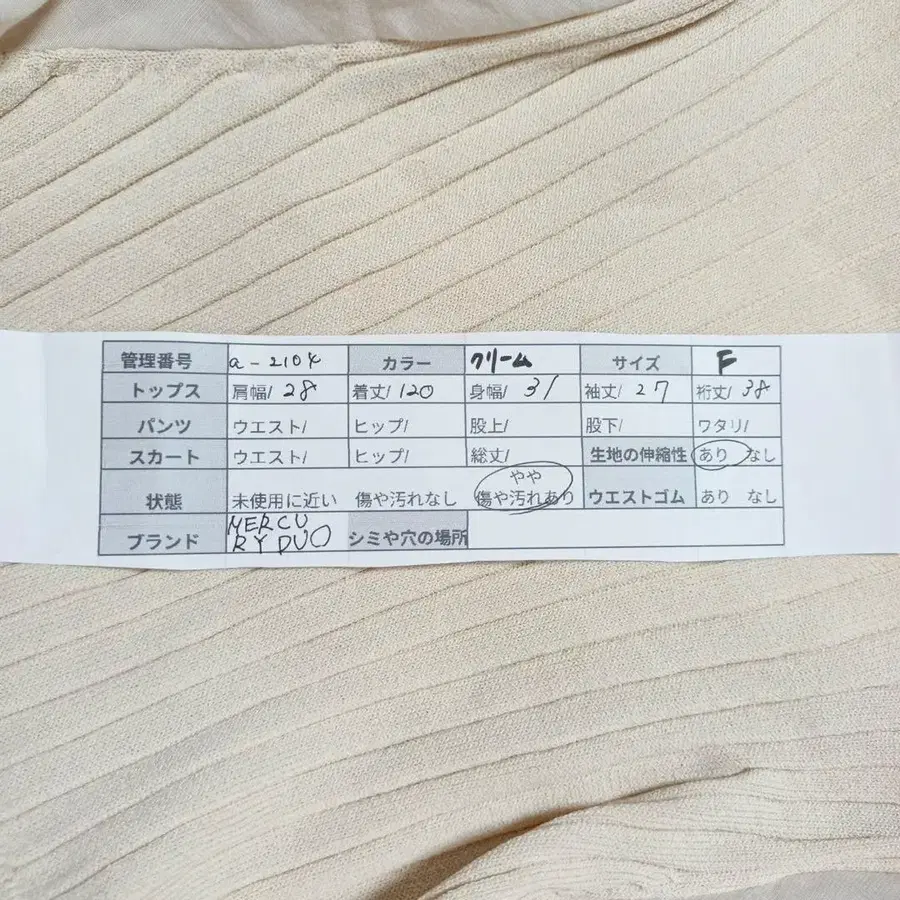 管理番号 a-2104 カラー クリーム サイズ F
トップス 肩幅/ 28 着丈/ 120 身幅/ 31 袖丈/ 27 裄丈/ 38
パンツ ウエスト/ ヒップ/ 股上/ 股下/ ワタリ/
スカート ウエスト/ ヒップ/ 総丈/ 生地の伸縮性 あり なし
やや
状態 未使用に近い 傷や汚れなし 傷や汚れあり ウエストゴム あり なし
MERCU
ブランド RY DUO シミや穴の場所